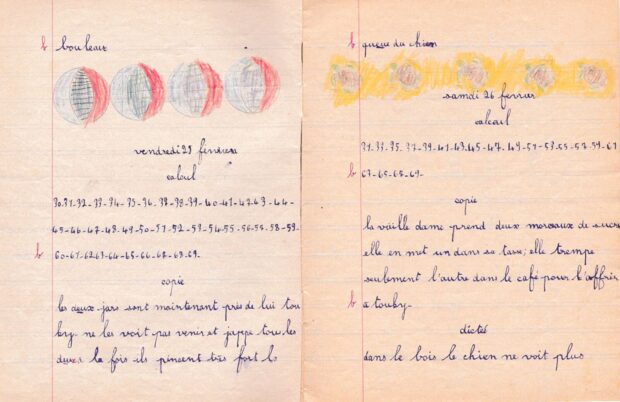 b bouleau
vendredi 25 février
calcul
30-31-32-33-34-35-36-38-38-39-40-41-42-43-44-
45-46-47-48-49-50-51-52-53-54-55-56-58-58-59-
b 60-61-62-63-64-65-66-68-68-69-
copie
les deux jars sont maintenant près de lui tou
by ne les voit pas venir et jappe tous les
deux à la fois ils pincent très fort le
b queue du chien
samdi 26 fevrier
calcul
31-33-35-37-39-41-43-45-47-49-51-53-55-57-59-61
b 63-65-68-69-
copie
la vieille dame prend deux morceaux de sucre
elle en met un dans sa tasse; elle trempe
seulement l'autre dans le café pour l'offrir
b a touby-
dictée
dans le bois le chien ne voit plus